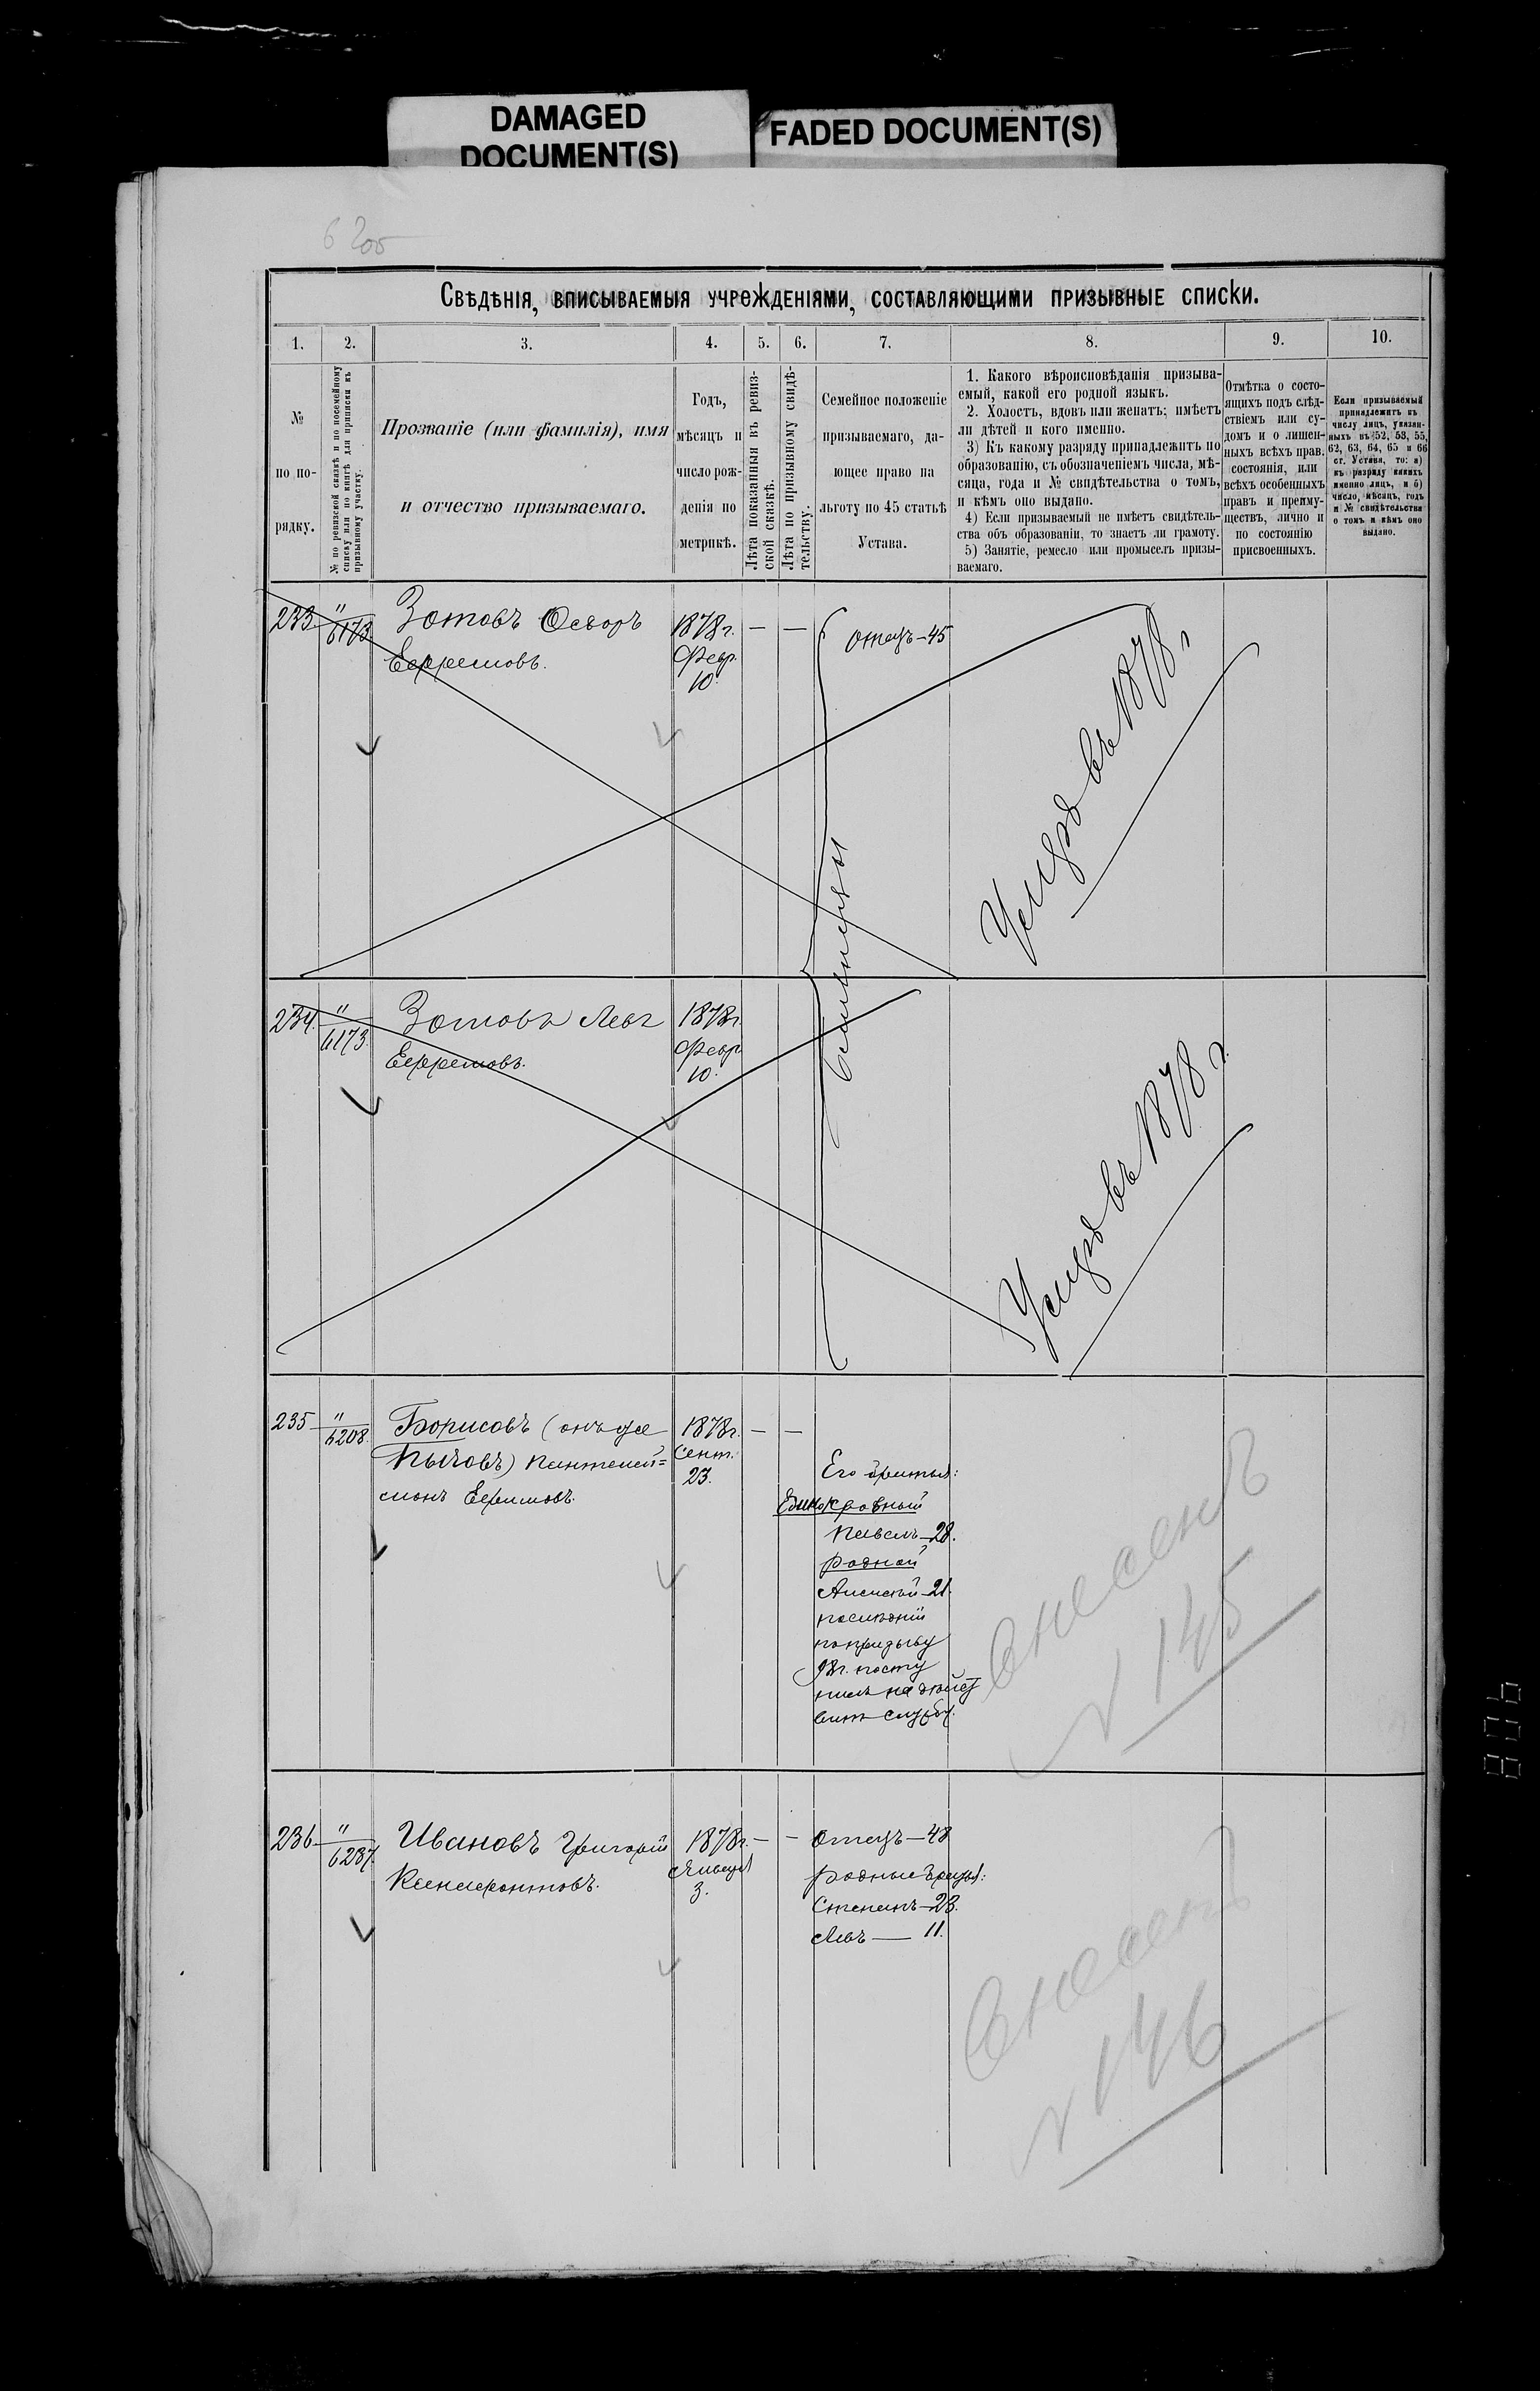 DAMAGED
DOCUMENT(S)
FADED DOCUMENT(S)
Свѣдѣнія, вписываемыя учрежденіями, составляющими призывные списки.
1. 2. 3. 4. 5. 6. 7. 8. 9. 10.
№
по по-
рядку.
№ по ревизской сказкѣ и по посемейному
списку или по книгѣ для приписки къ
призывному участку.
Прозваніе (или фамилія), имя
и отчество призываемаго.
Годъ,
мѣсяцъ и
число рож-
денія по
метрикѣ.
Лѣта показанныя въ ревиз-
ской сказкѣ.
Лѣта по призывному свидѣ-
тельству.
Семейное положеніе
призываемаго, да-
ющее право на
льготу по 45 статьѣ
Устава.
1. Какого вѣроисповѣданія призыва-
емый, какой его родной языкъ.
2. Холостъ, вдовъ или женатъ; имѣетъ
ли дѣтей и кого именно.
3) Къ какому разряду принадлежитъ по
образованію, съ обозначеніемъ числа, мѣ-
сяца, года и № свидѣтельства о томъ,
и кѣмъ оно выдано.
4) Если призываемый не имѣетъ свидѣтель-
ства объ образованіи, то знаетъ ли грамоту.
5) Занятіе, ремесло или промыселъ призы-
ваемаго.
Отмѣтка о состо-
ящихъ подъ слѣд-
ствіемъ или су-
домъ и о лишен-
ныхъ всѣхъ правъ
состоянія, или
всѣхъ особенныхъ
правъ и преиму-
ществъ, лично и
по состоянію
присвоенныхъ.
Если призываемый
принадлежитъ къ
числу лицъ, указан-
ныхъ въ 52, 53, 55,
62, 63, 64, 65 и 66
ст. Устава, то: а)
къ разряду какихъ
именно лицъ, и б)
число, мѣсяцъ, годъ
и № свидѣтельства
о томъ и кѣмъ оно
выдано.
233 " 6173 Зотовъ Ѳедоръ 1878г. — — отецъ—45
Ефремовъ. Февр.
10.
близнецы
Умеръ въ 1878 г
234. " 6173. Зотовъ Левъ 1878г.
Ефремовъ. Февр
10.
Умеръ въ 1878 г.
235 " 6208. Борисовъ (онъ же 1878г. — —
Пычовъ) Пантелей= Сент.
монъ Ефимовъ. 23.
Его братья:
Единокровный
Павелъ—28.
родной
Алексѣй—21.
послѣдній
по призыву
98г. посту
пилъ на дѣйст
вит службу.
внесенъ
№ 145
236 " 6237. Ивановъ Григорій 1878г. — — Отецъ—48
Ксенофонтовъ. Января
3.
родные братья:
Степанъ—23.
Левъ — 11.
внесенъ
№ 146
806